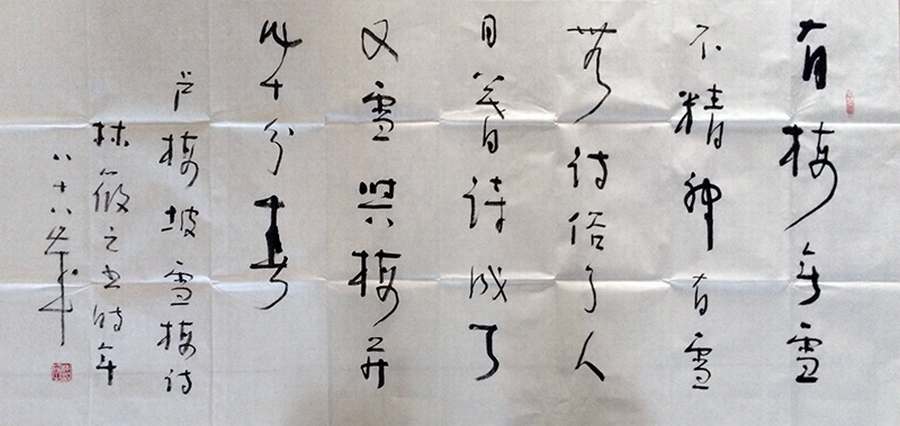 有梅无雪
不精神有雪
無诗俗了人
日暮诗成天
又雪與梅并
作十分春
卢梅坡雪梅诗
林筱之书时年
八十八岁